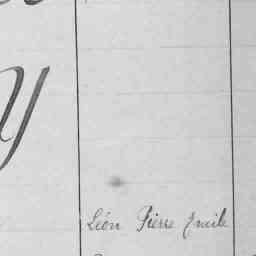 y
Léon Pierre Emile